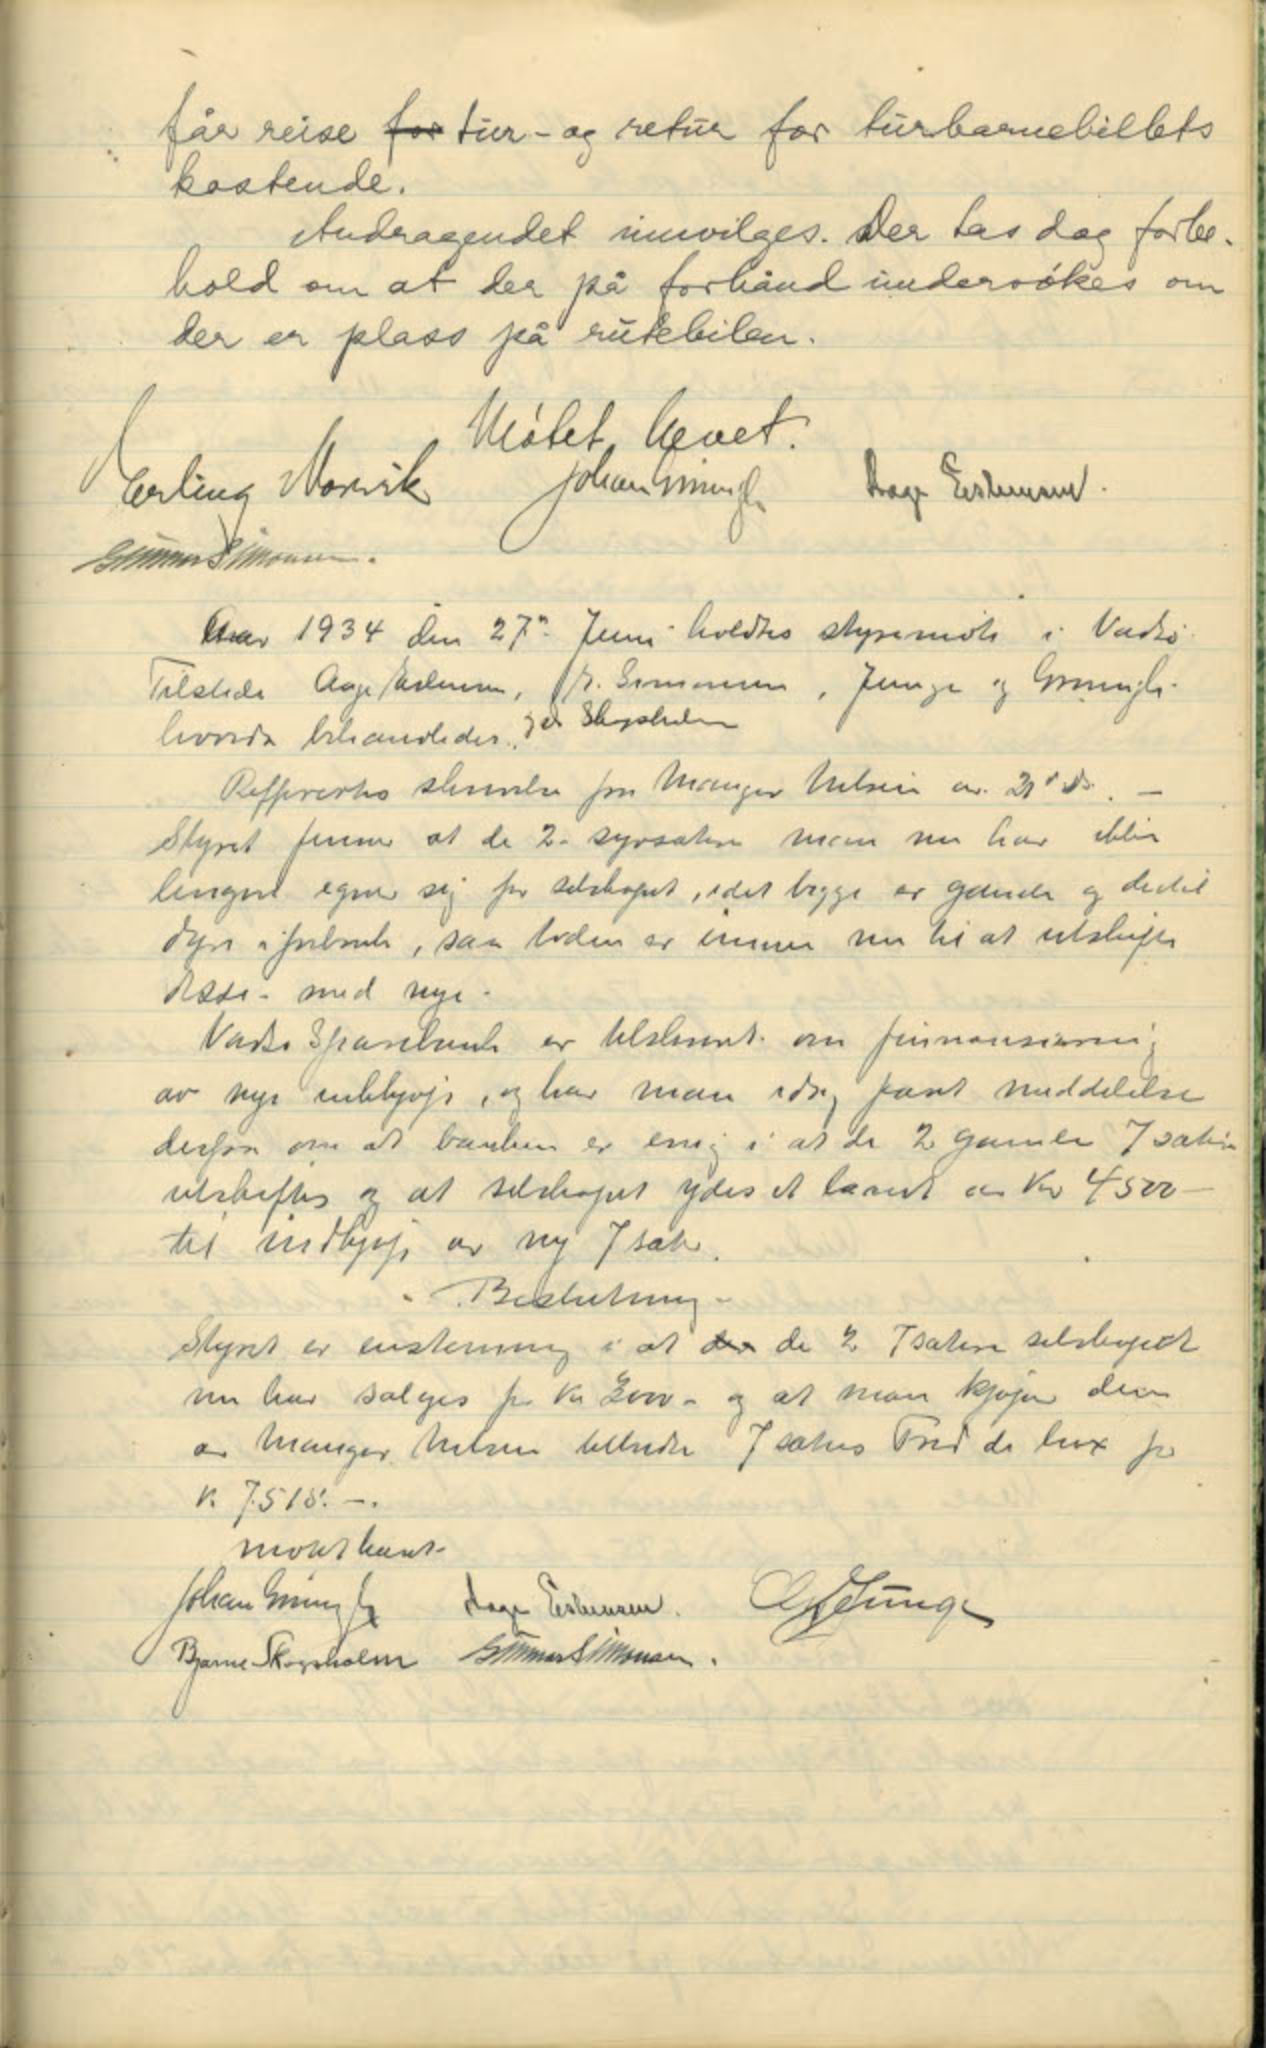 får reise for tur- og retur for turbarnebillets
kostende.
Andragendet innvilges. Der tas dog forbe-
hold om at der på forhånd undersökes om
der er plass på rutebilen.
Mötet hevet.
Erling Norvik Johan Aage Esbensen.
Gunnar Simonsen.
Aar 1934 den 27n Juni holdtes styremöte i Vadsö.
Tilstede Aage Esbensen, G. Simonsen, Junge og
og Skogsholm
hvorda behandledes.
Reffrertes skrivelse fra Manger Nelsen av 21' ds. —
Styret finner at de 2- syvsætere man nu har ikke
lengre egner sig for selskapet, idet begge er gamle og dertil
dyre i forbruk, saa tiden er inne nu til at utskifte
disse- med nye-
Vadsö Sparebank er tilskrevet om finnansiering
av nye innkjöp, og har man idag faat meddelelse
derfra om at banken er enig i at de 2 gamle 7 sætere
utskiftes og at selskapet ydes et laan av Kr 4500—
til indkjöp av ny 7 sæter.
- Beslutning -
Styret er enstemmig i at der de 2 7sætere selskapet
nu har sælges for Kr 3000- og at man kjöper den
av Manger Nelsen tilbudte 7 sæters Ford de lux for
Kr. 7.518.—.
mötet hevet-
Johan Aage Esbensen. Junge
Bjarne Skogsholm Gunnar Simonsen.